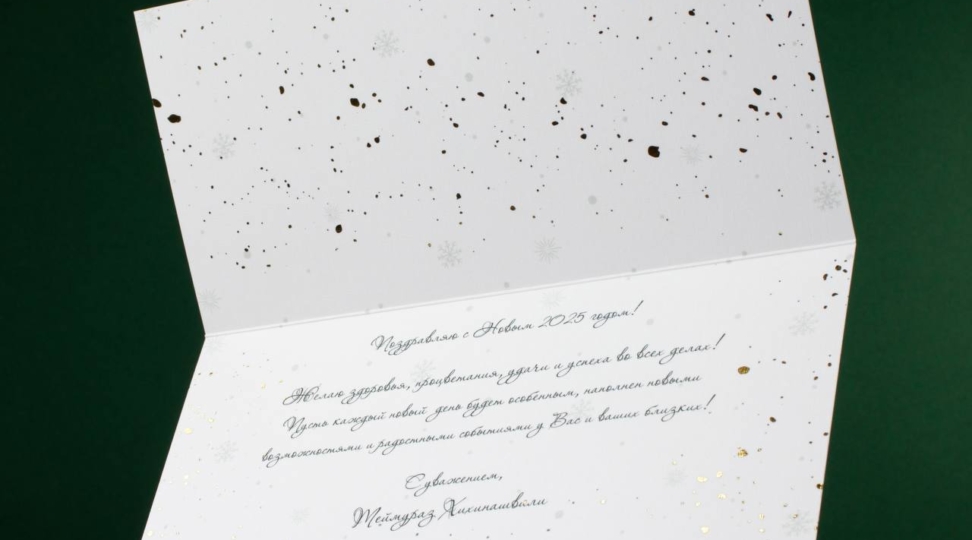 Поздравляю с Новым 2025 годом!
Желаю здоровья, процветания, удачи и успеха во всех делах!
Пусть каждый новый день будет особенным, наполнен новыми
возможностями и радостными событиями у Вас и ваших близких!
С уважением,
Теймураз Хихинашвили